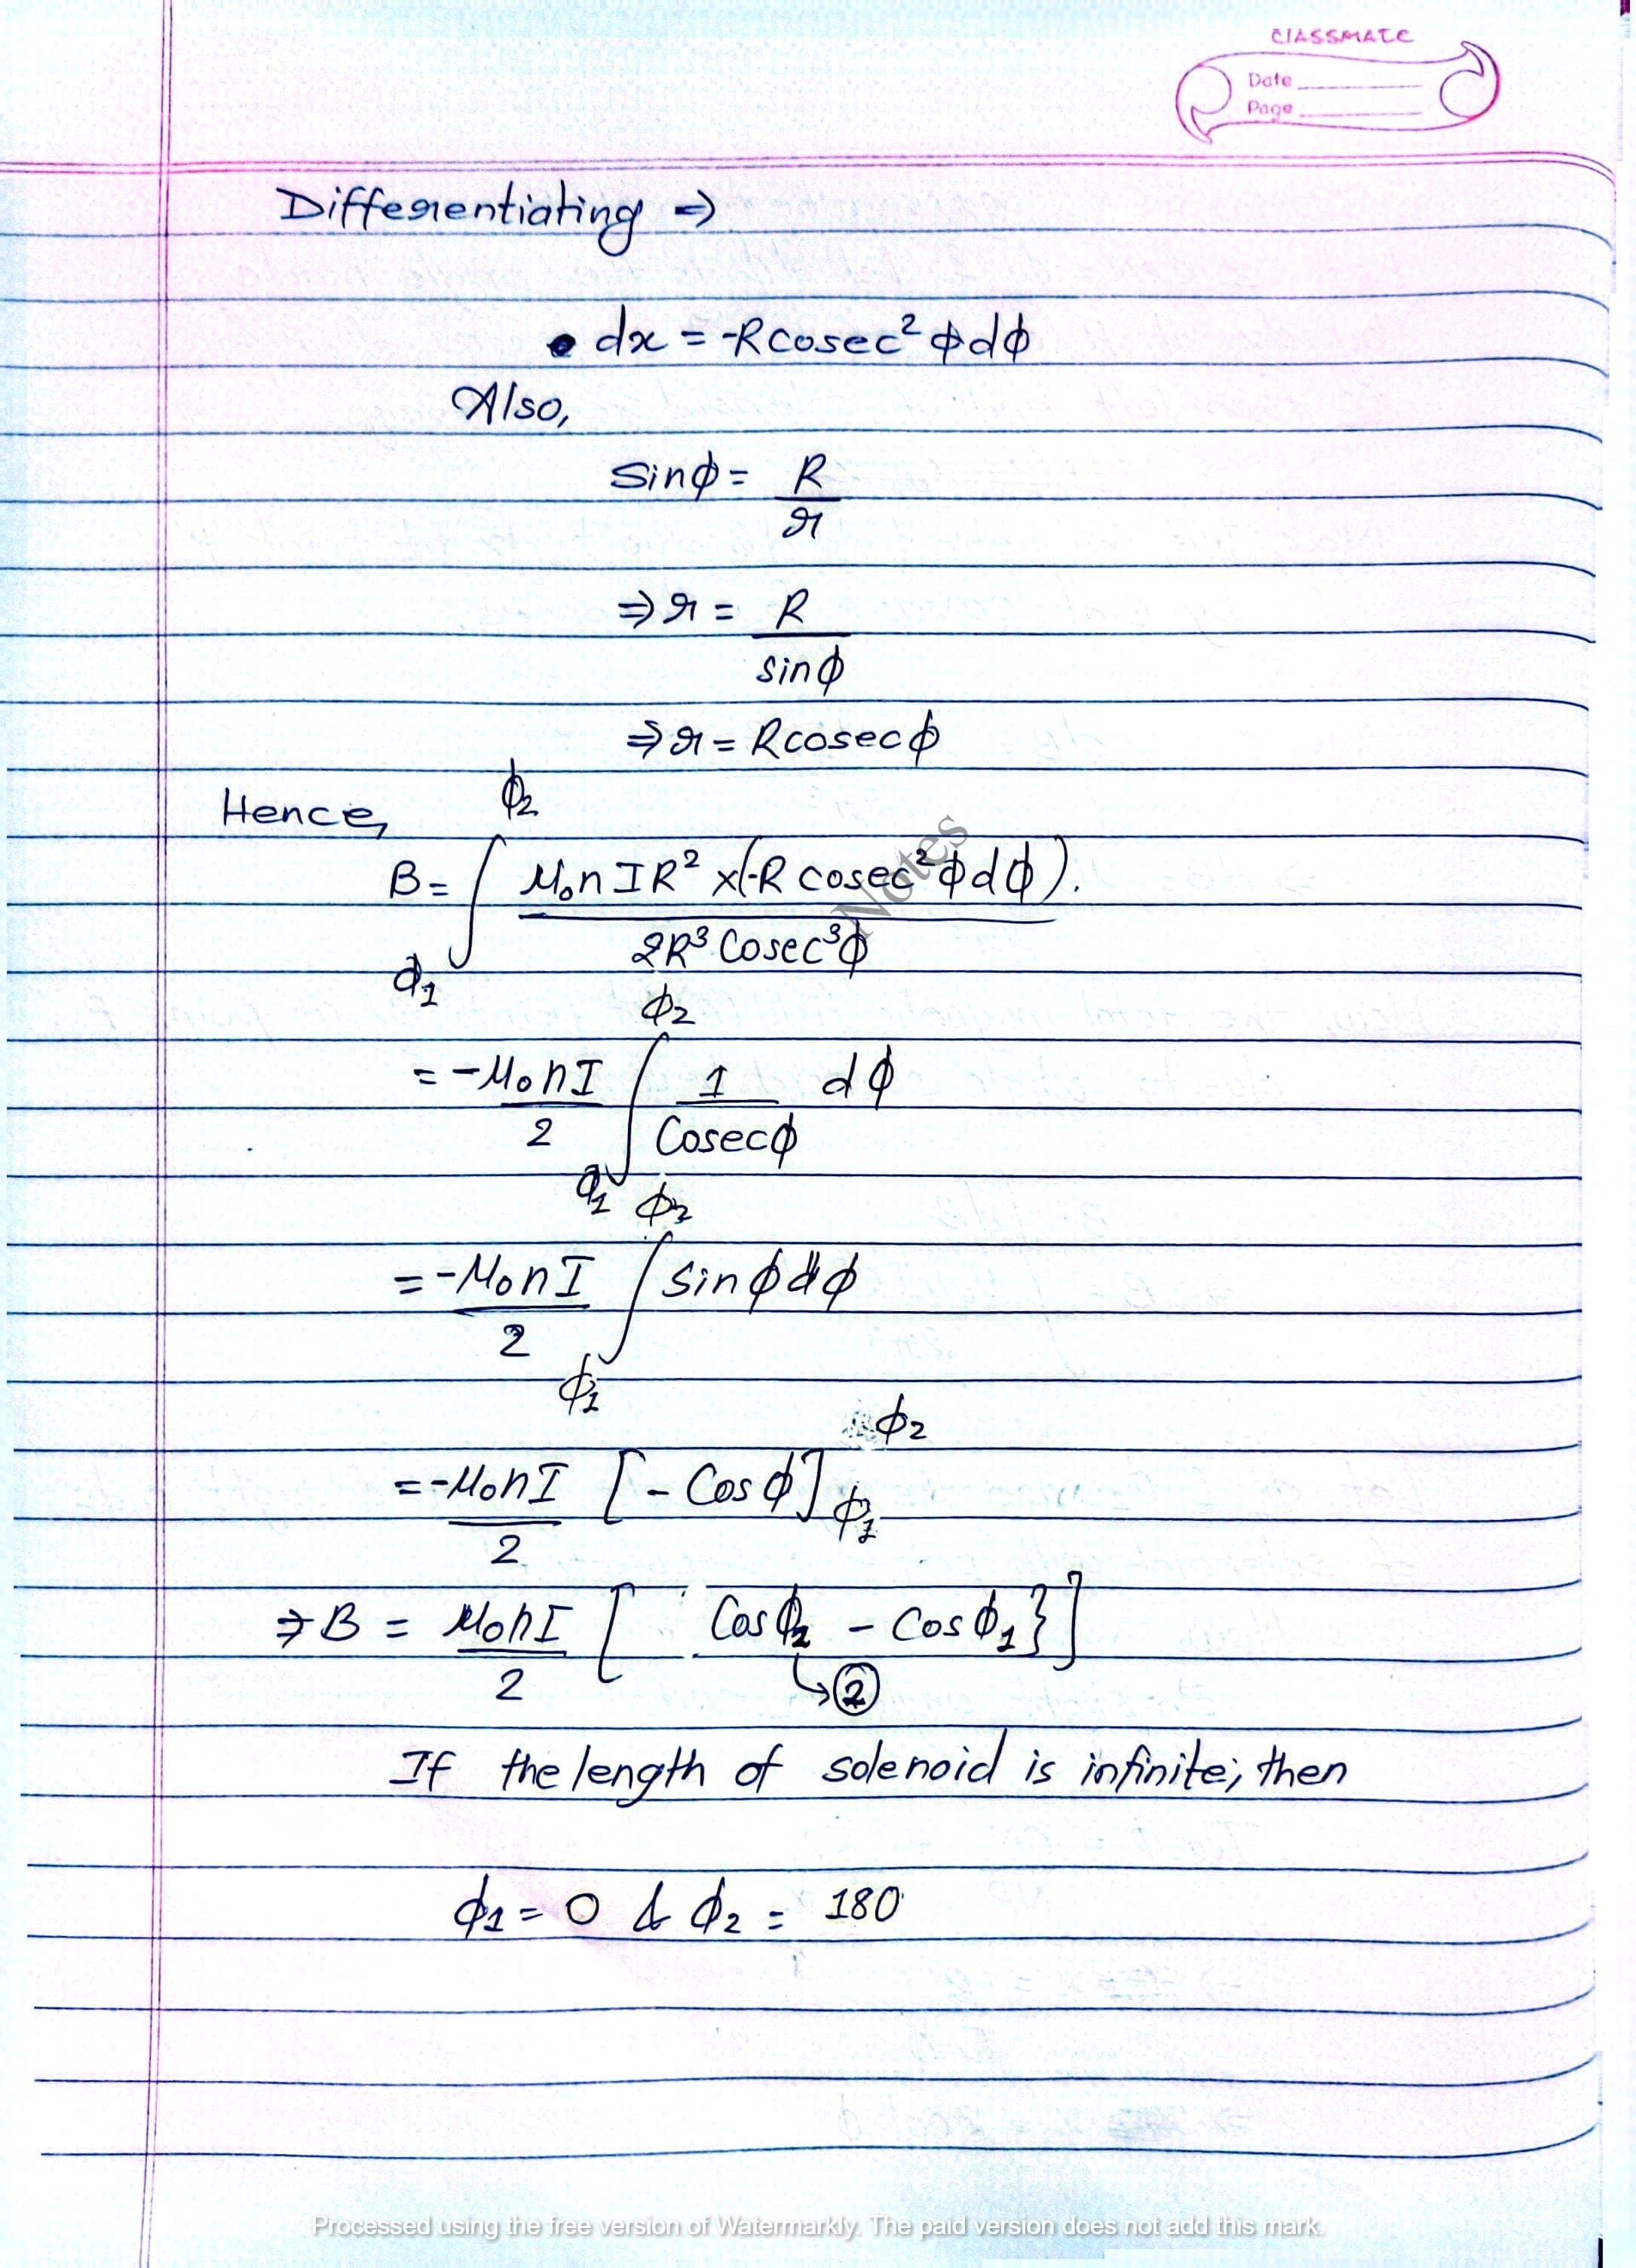 CLASSMATE
Date
Page
Differentiating ⇒
dx = -R cosec² ϕ dϕ
Also,
Sinϕ = R/r
⇒ r = R/sinϕ
⇒ r = R cosec ϕ
Hence,
B = ∫_ϕ1^ϕ2 μ₀nIR² x (-R cosec² ϕ dϕ). / 2R³ Cosec³ ϕ
= -μ₀nI/2 ∫_ϕ1^ϕ2 1/Cosecϕ dϕ
= -μ₀nI/2 ∫_ϕ1^ϕ2 sin ϕ dϕ
= -μ₀nI/2 [- Cos ϕ]_ϕ1^ϕ2
⇒ B = μ₀nI/2 [ Cosϕ2 - Cosϕ1}]
↳ ②
If the length of solenoid is infinite, then
ϕ1 = 0 & ϕ2 = 180
Notes
Processed using the free version of Watermarkly. The paid version does not add this mark.